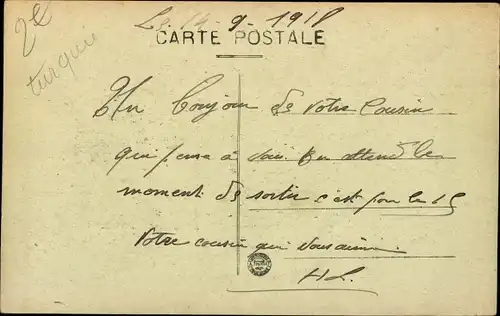 2e
turquie
Le 14-9-1918
CARTE POSTALE
Un Bonjour de votre Cousin
qui pense à vous. En attend le
moment de sortir c'est pour le 15
Votre cousin qui vous aime.
HL.